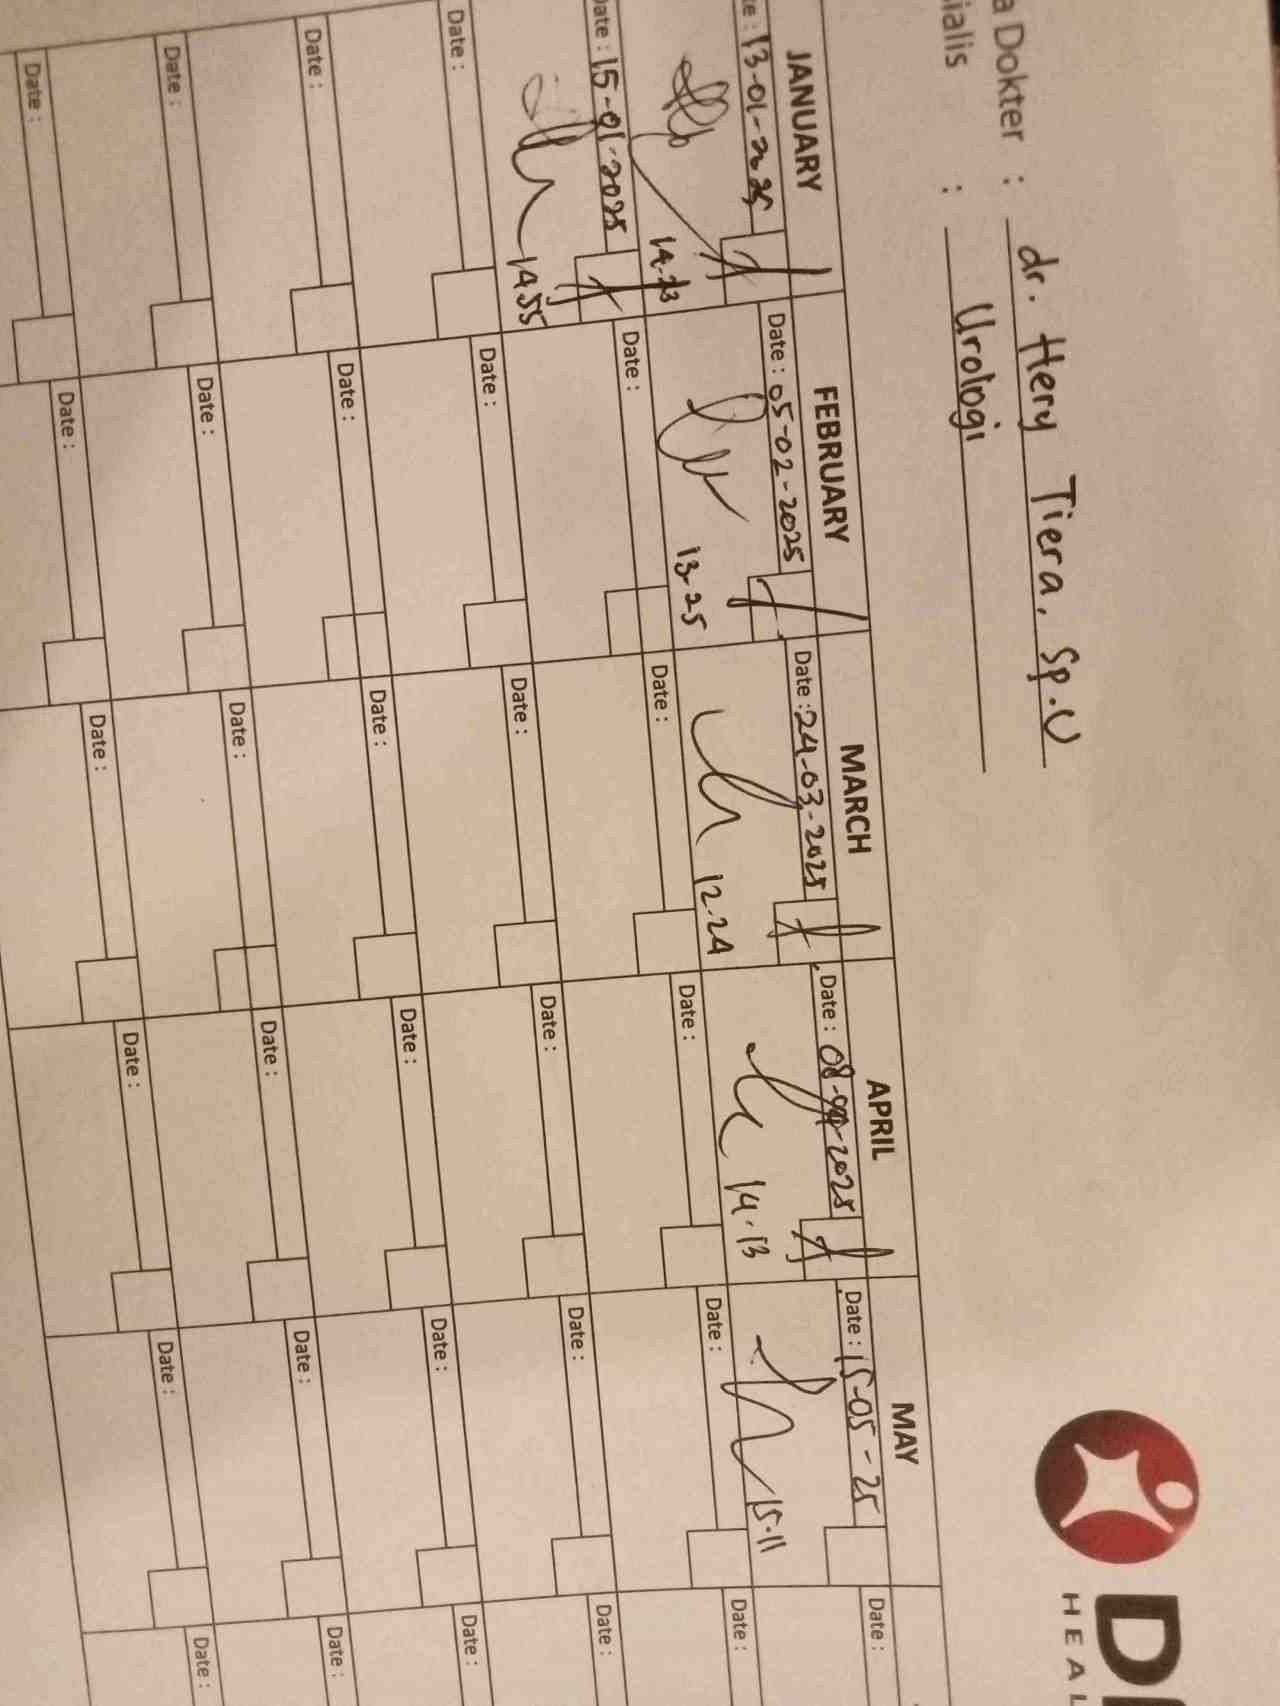 a Dokter : dr. Hery Tiera, Sp.U
ialis : Urologi
HEAL
JANUARY FEBRUARY MARCH APRIL MAY
te : 13-01-2025 Date : 05-02-2025 Date : 24-03-2025 Date : 08-04-2025 Date : 15-05-25 Date :
14.23 13.25 12.24 14.13 15.11
Date : 15-01-2025 Date : Date : Date : Date : Date :
14.55
Date : Date : Date : Date : Date : Date :
Date : Date : Date : Date : Date : Date :
Date : Date : Date : Date : Date : Date :
Date : Date : Date : Date : Date : Date :